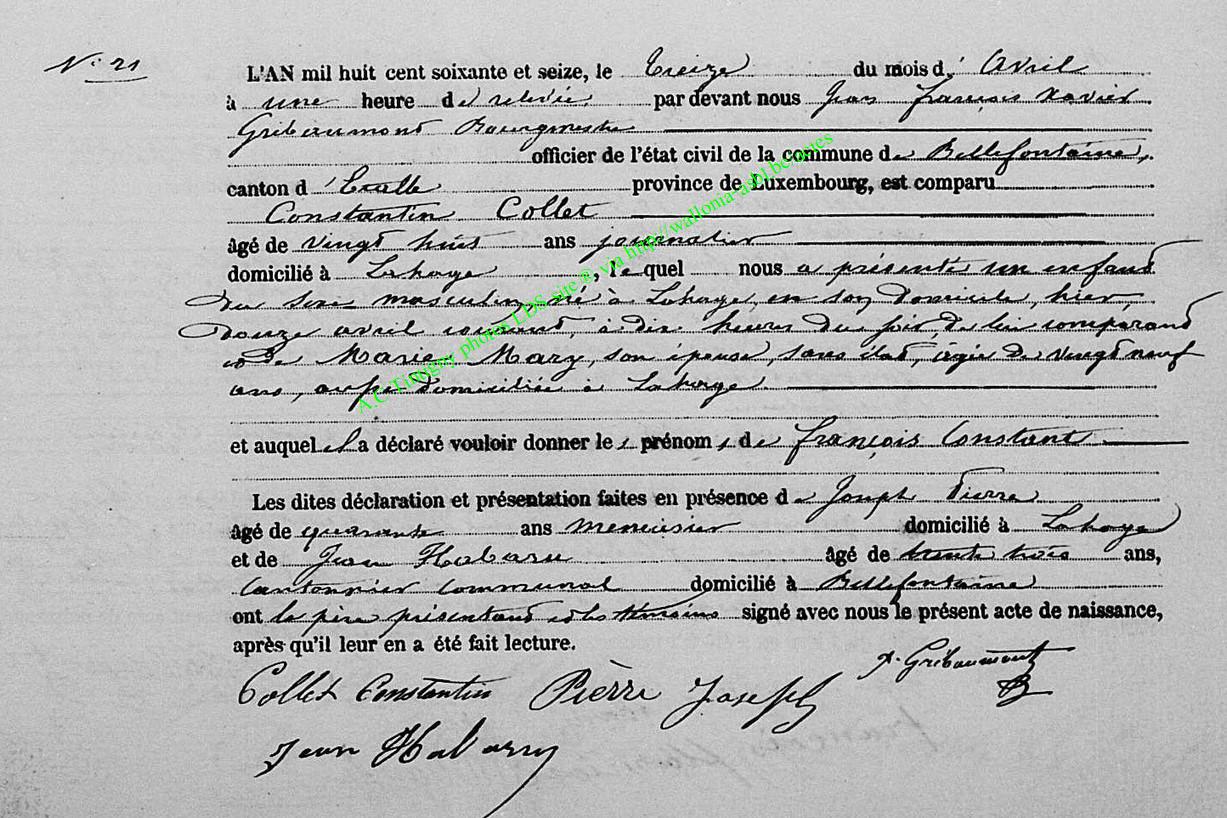 N° 21
L'AN mil huit cent soixante et seize, le treize du mois d'Avril
à une heure de relevée, par devant nous Jean François Xavier
Gribaumont Bourgmestre
officier de l'état civil de la commune de Bellefontaine,
canton d'Etalle province de Luxembourg, est comparu
Constantin Collet
âgé de vingt huit ans journalier
domicilié à Lahage, lequel nous a présenté un enfant
du sexe masculin, né à Lahage, en son domicile, hier,
douze avril courant, à dix heures du soir, de lui comparant
et de Marie Mary, son épouse, sans état, âgée de vingt neuf
ans, aussi domiciliée à Lahage
et auquel il a déclaré vouloir donner les prénoms de François Constant
Les dites déclaration et présentation faites en présence de Joseph Pierre
âgé de quarante ans menuisier domicilié à Lahage
et de Jean Habaru âgé de trente trois ans,
cantonnier communal domicilié à Bellefontaine
ont le père présentant et les témoins signé avec nous le présent acte de naissance,
après qu'il leur en a été fait lecture.
Collet Constantin Pièrre Joseph X. Gribaumont
Jean Habarru
A.C. Timigey photos LDS site ® via http://wallonia-asbl.be/notes